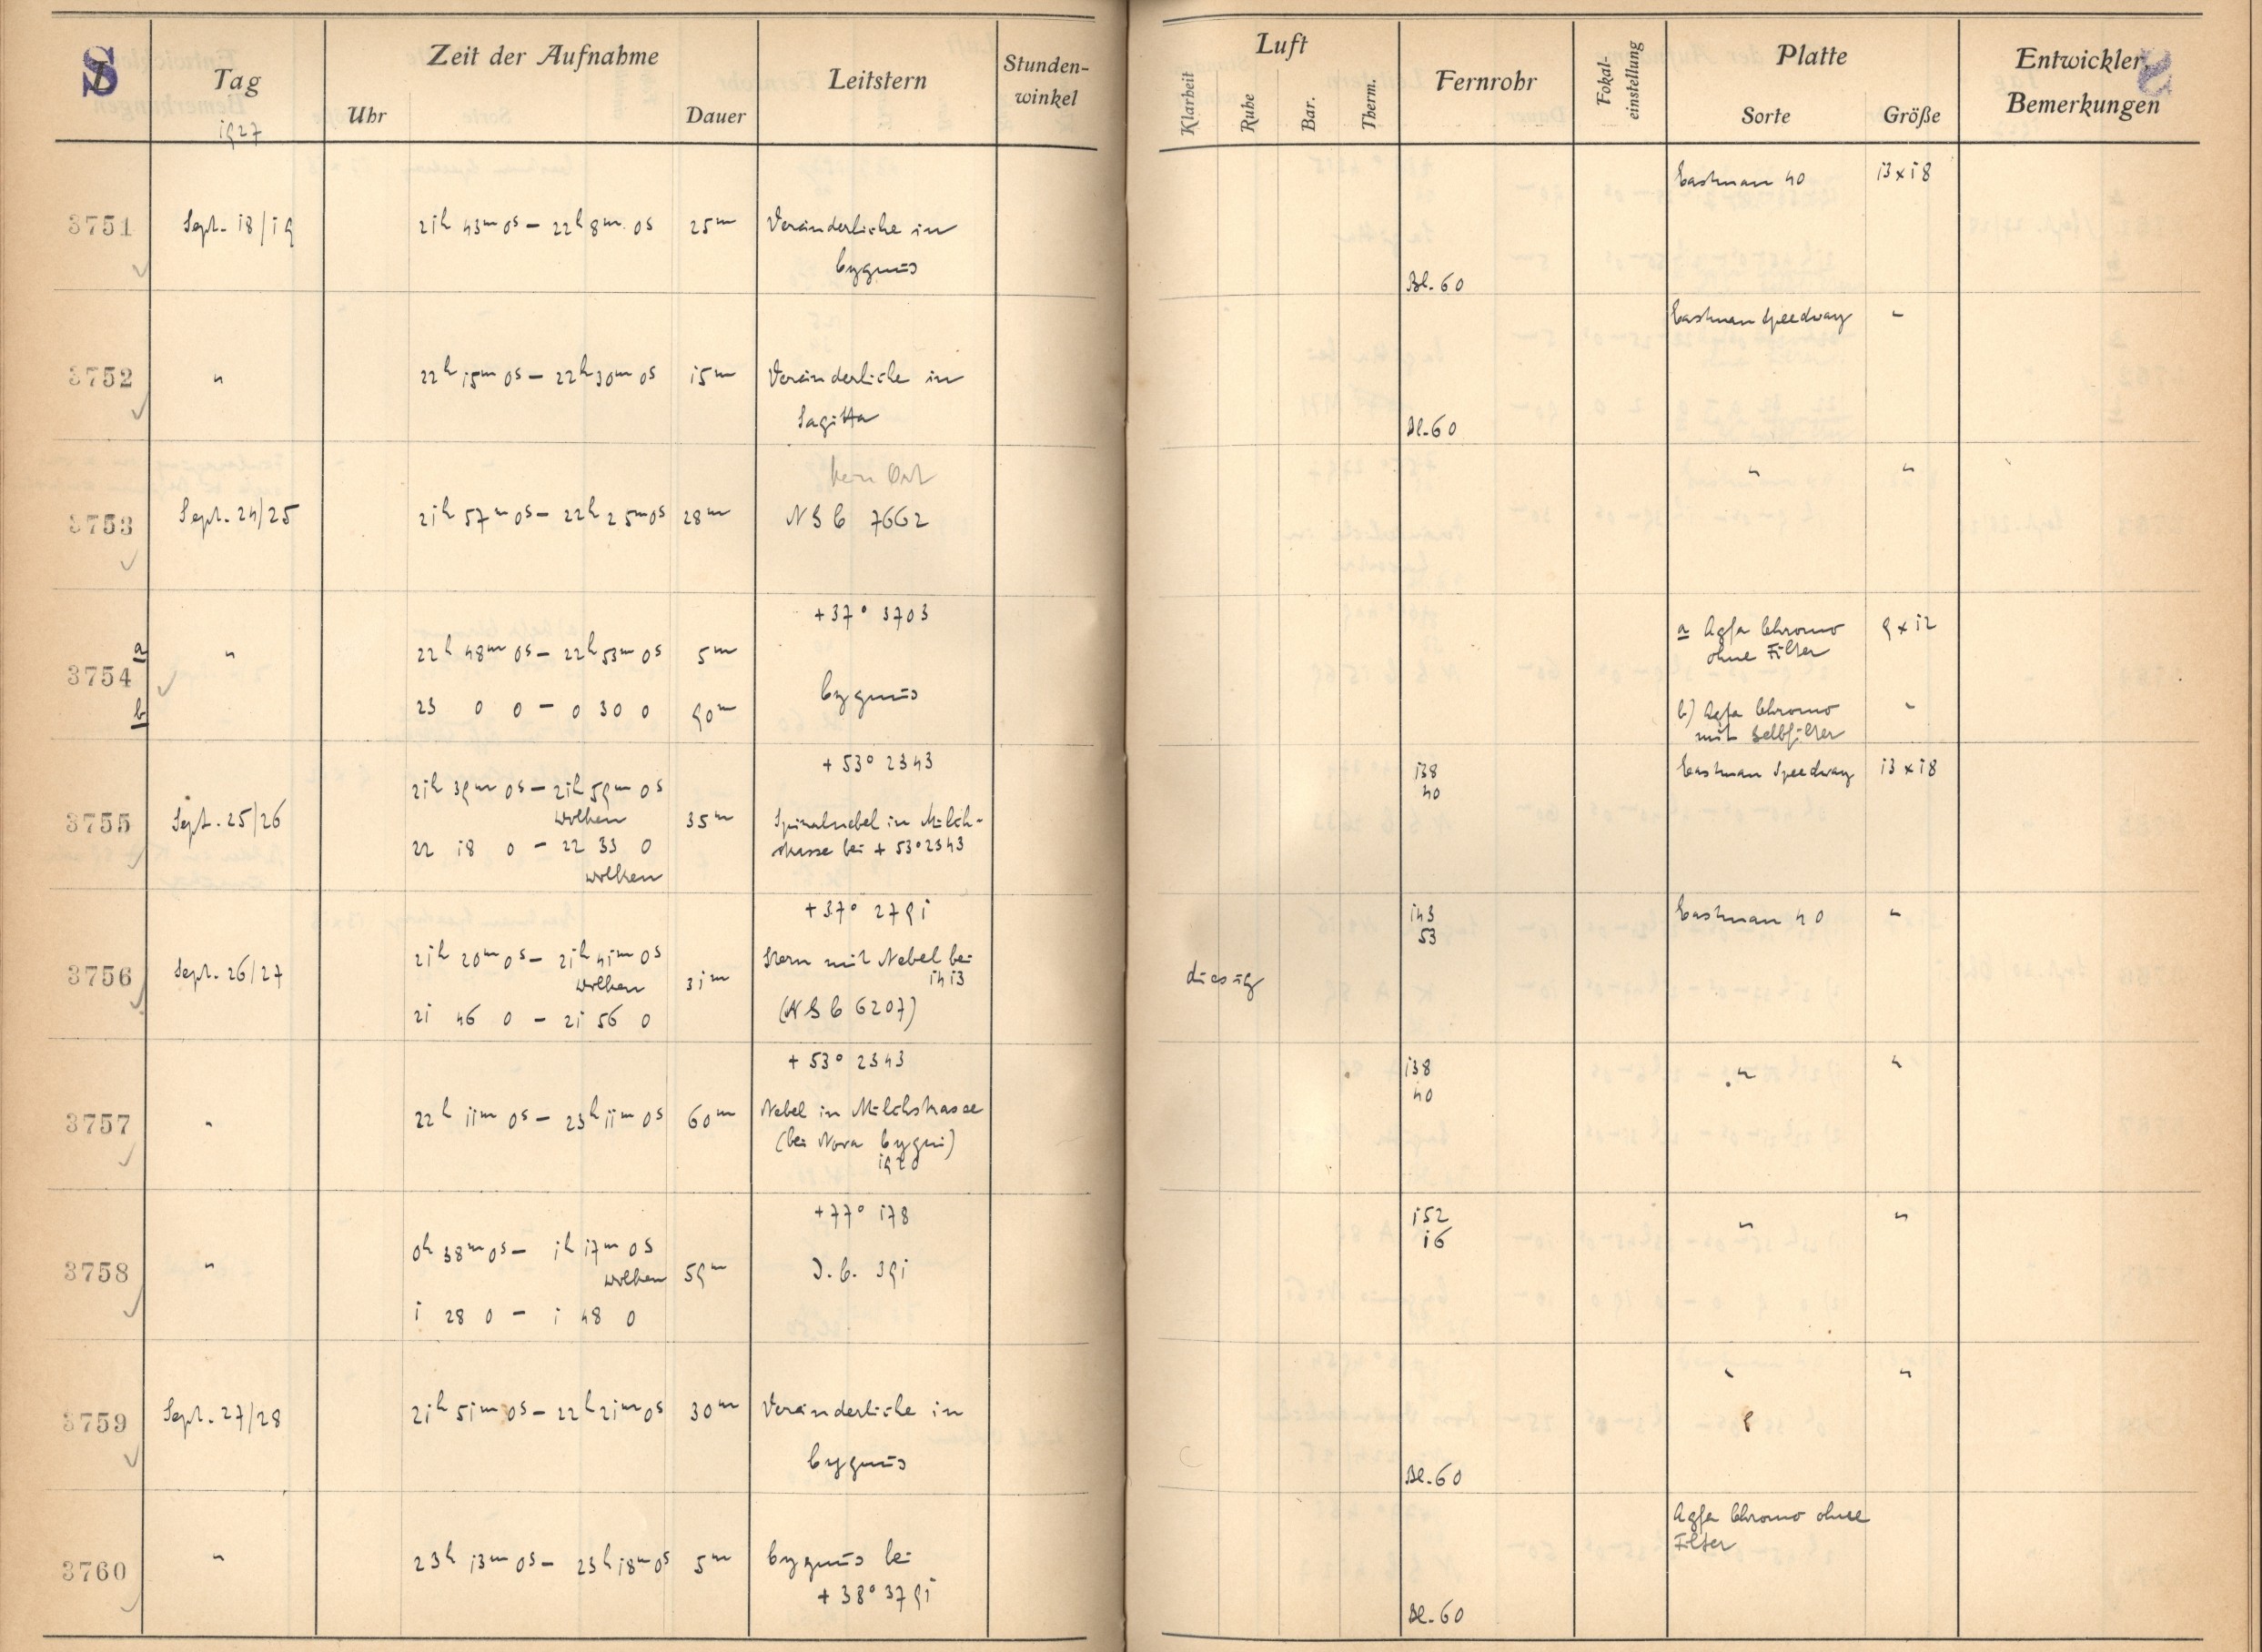 S
L
Tag
1927
Zeit der Aufnahme
Uhr
Dauer
Leitstern
Stunden-
winkel
Luft
Klarheit
Ruhe
Bar.
Therm.
Fernrohr
Fokal-
einstellung
Platte
Sorte
Größe
Entwickler,
Bemerkungen
3751 Sept. 18/19 21h 43m 0s – 22h 8m 0s 25m Veränderliche in
Cygnus
Bl. 60
Eastman 40 13 x 18
3752 " 22h 15m 0s – 22h 30m 0s 15m Veränderliche in
Sagitta
Bl. 60
Eastman Speedway "
kein Ort
3753 Sept. 24/25 21h 57m 0s – 22h 25m 0s 28m NGC 7662
" "
+37° 3703
3754 a " 22h 48m 0s – 22h 53m 0s 5m
b 23 0 0 – 0 30 0 90m Cygnus
a Agfa Chromo 9 x 12
ohne Filter
b) Agfa Chromo "
mit Gelbfilter
+ 53° 2343
3755 Sept. 25/26 21h 39m 0s – 21h 59m 0s
Wolken
35m Spiralnebel in Milch-
strasse bei + 53° 2343
22 18 0 – 22 33 0
Wolken
138
40
Eastman Speedway 13 x 18
+37° 2791
3756 Sept. 26/27 21h 20m 0s – 21h 41m 0s
Wolken
31m Stern mit Nebel bei
1413
21 46 0 – 21 56 0 (NGC 6207)
diesig
143
53
Eastman 40 "
+ 53° 2343
3757 " 22h 11m 0s – 23h 11m 0s 60m Nebel in Milchstrasse
(bei Nova Cygni)
1920
138
40
" "
+77° 178
3758 " 0h 38m 0s – 1h 17m 0s
Wolken
59m J.C. 391
1 28 0 – 1 48 0
152
16
" "
3759 Sept. 27/28 21h 51m 0s – 22h 21m 0s 30m Veränderliche in
Cygnus
Bl. 60
" "
?
3760 " 23h 13m 0s – 23h 18m 0s 5m Cygnus bei
+ 38° 3791
Bl. 60
Agfa Chromo ohne
Filter